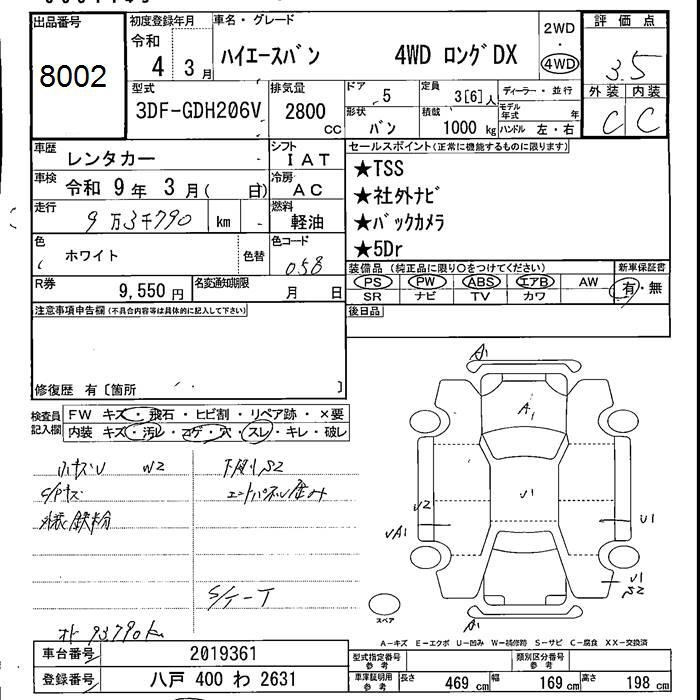 出品番号
8002
初度登録年月
令和
4 3月
車名・グレード
ハイエースバン 4WD ロングDX
2WD
・
4WD
評価点
3.5
外装 内装
C C
型式
3DF-GDH206V
排気量
2800
cc
ドア
5
形状
バン
定員
3[6]人
積載
1000 kg
ディーラー・並行
モデル年式 年
ハンドル 左・右
車歴
レンタカー
シフト
IAT
車検
令和 9年 3月( 日)
冷房
AC
走行
9万3千790 km
燃料
軽油
色
ホワイト
色替
色コード
058
R券
9,550円
名変通知期限
月 日
セールスポイント(正常に機能するものに限ります)
★TSS
★社外ナビ
★バックカメラ
★5Dr
装備品(純正品に限り○をつけてください)
PS PW ABS エアB AW
SR ナビ TV カワ
新車保証書
有・無
後日品
注意事項申告欄(不具合内容等は具体的に記入して下さい)
修復歴 有[箇所 ]
検査員
記入欄
FW キズ・飛石・ヒビ割・リペア跡・×要
内装 キズ・汚レ・コゲ・穴・スレ・キレ・破レ
W2
S2
外装鉄粉
オド 93790km
A1
A1
U1
U2
UA1
U1
U1
S2
A1
スペア
A-キズ E-エクボ U-凹み W-補修跡 S-サビ C-腐食 XX-交換済
車台番号
2019361
登録番号
八戸 400 わ 2631
型式指定番号
参考
類別区分番号
参考
車庫証明用
参考
長さ 469 cm 幅 169 cm 高さ 198 cm